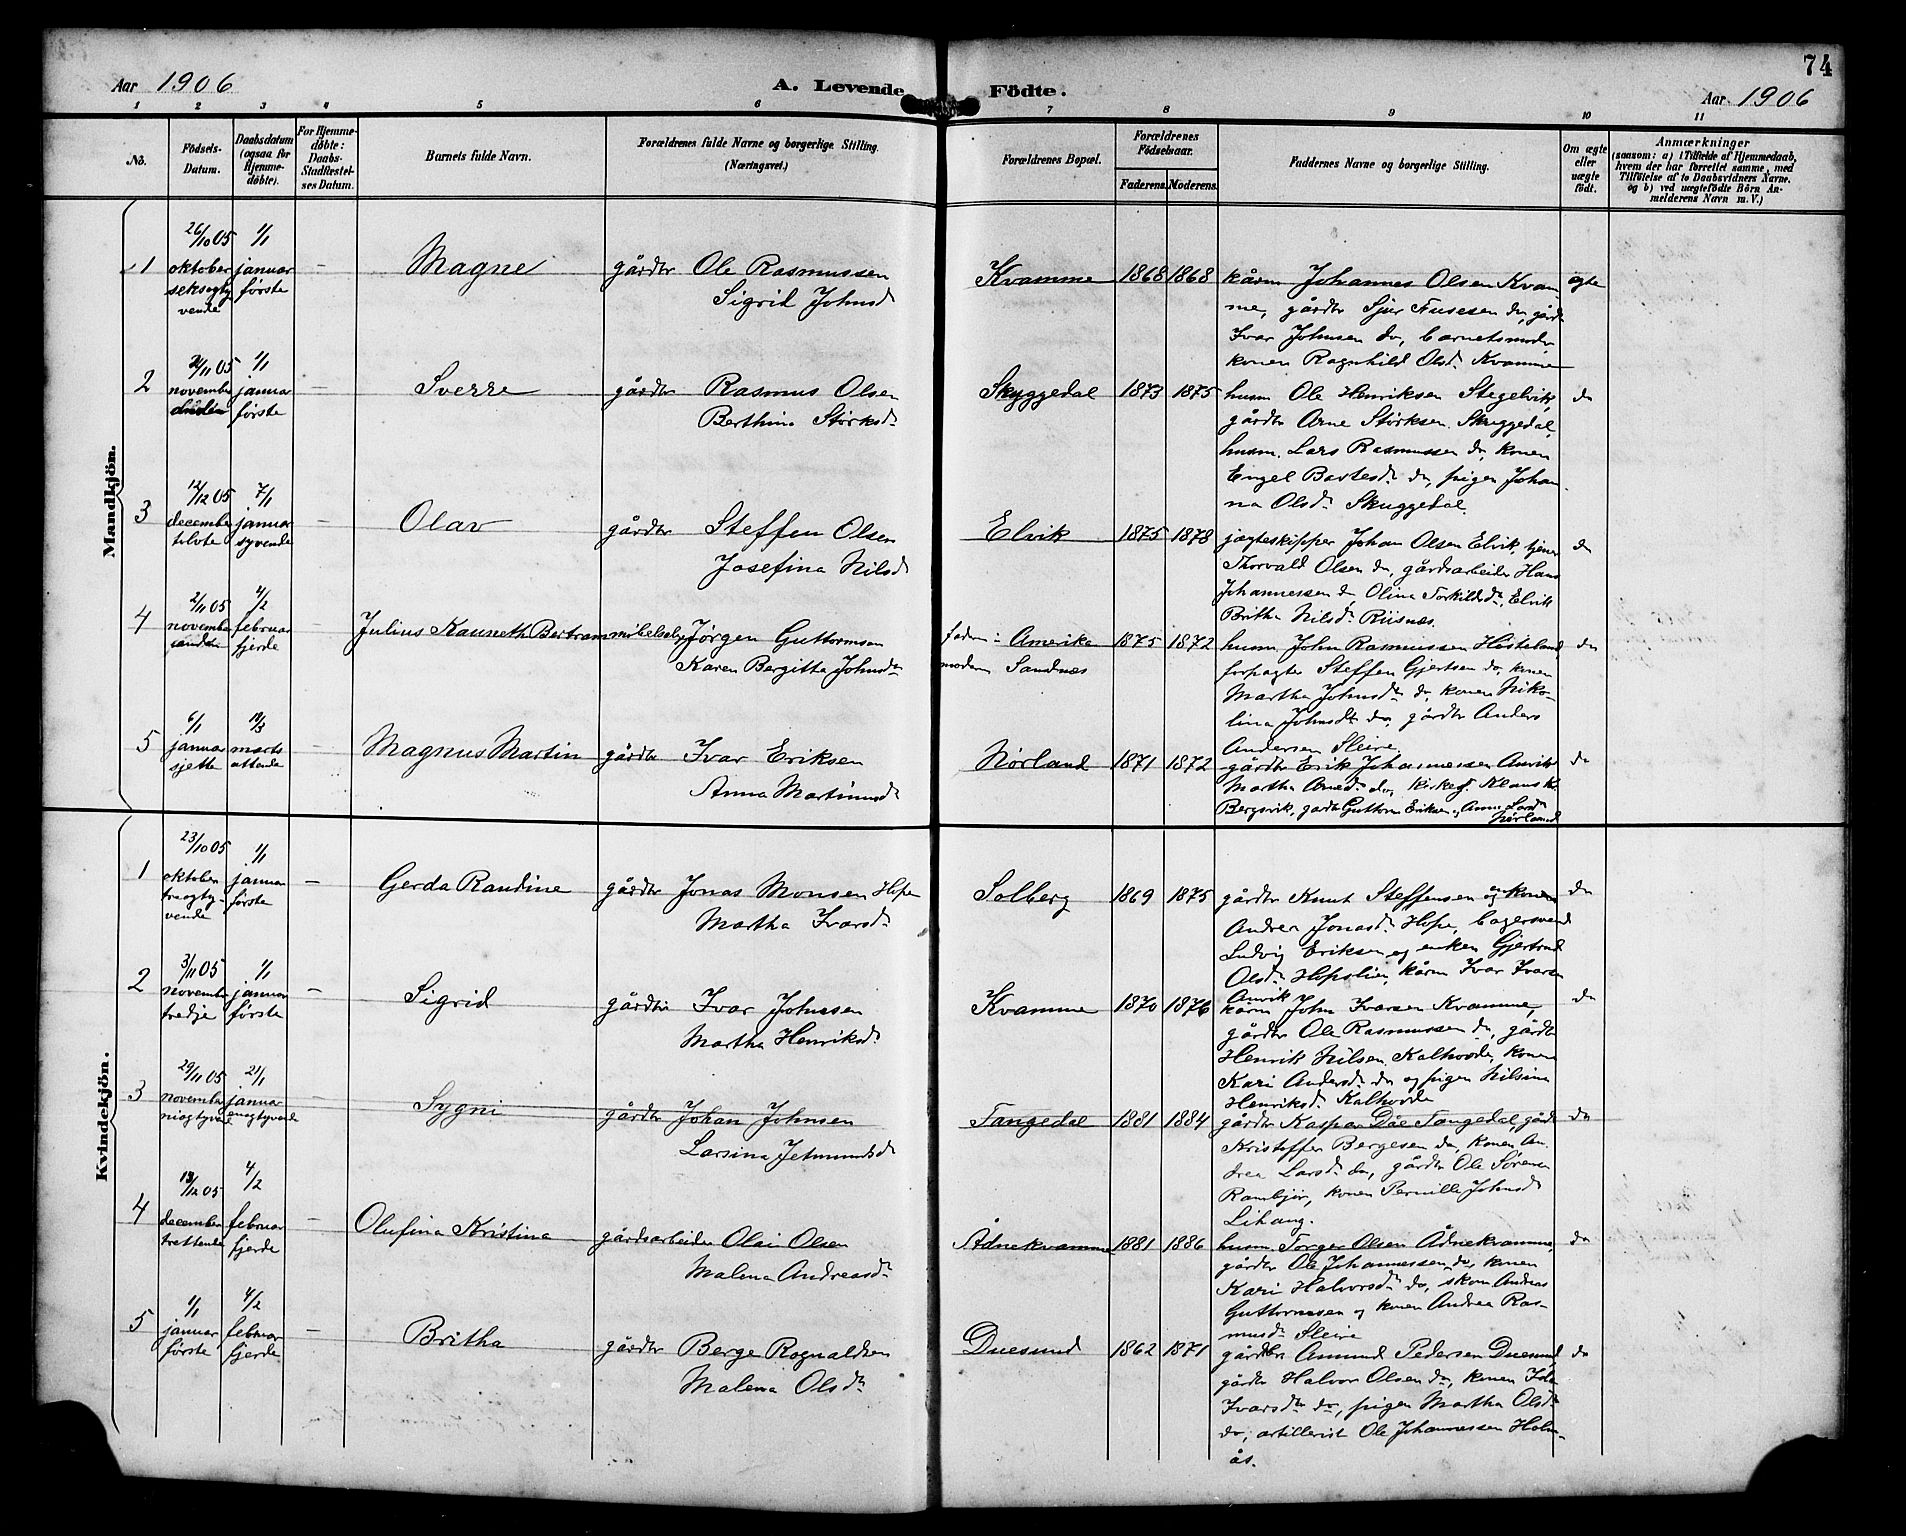 74
Aar 1906
A. Levende
Födte.
Aar 1906
1 2 3 4 5 6 7 8 9 10 11
No.
Födsels-
Datum.
Daabsdatum
(ogsaa for
Hjemme-
döbte).
For Hjemme-
döbte:
Daabs-
Stadfæstel-
ses Datum.
Barnets fulde Navn.
Forældrenes fulde Navne og borgerlige Stilling.
(Næringsvei.)
Forældrenes Bopæl.
Forældrenes
Födselsaar.
Faderens. Moderens.
Faddernes Navne og borgerlige Stilling.
Om ægte
eller
uægte
födt.
Anmærkninger
(saasom: a) i Tilfælde af Hjemmedaab,
hvem der har forrettet samme, med
Tilföielse af to Daabsvidners Navne.
og b) ved uægtefödte Börn An-
melderens Navn m. V.)
Mandkjön.
1
26/10 05
oktober
seksogty
vende
1/1
januar
første
Magne
gårdbr Ole Rasmussen
Sigrid Johnsd
Kvamme
1868 1868
kårm Johannes Olsen Kvam-
me, gårdbr Sjur do, gårdb
Ivar Johnsen do, barnetsmoder
konen Ragnhild Olsd. Kvamme
ægte
2
2/11 05
november
anden
1/1
januar
første
Sverre
gårdbr Rasmus Olsen
Berthina Størksd.
Skyggedal
1873 1875
husm Ole Henriksen Stegelvik,
gårdbr Arne Størksen Skuggedal,
husm. Lars Rasmussen do, konen
Engel do, pigen Johan-
na Olsd. Skuggedal.
do
3
12/12 05
december
tolvte
7/1
januar
syvende
Olav
gårdbr Steffen Olsen
Josefina Nilsd
Elvik
1875 1878
jægteskipper Johan Olsen Elvik, tjener
Thorvald Olsen do, gårdsarbeider Hans
Johannessen do Olina Torkildsd., Elvik
Britha Nilsd. Riisnes.
do
4
2/11 05
november
anden
4/2
februar
fjerde
Julius Kenneth Bertram
Jørgen Guttormsen
Karen Bergitta Johnsd
faderen: Amerika
moderen Sandnes
1875 1872
husm John Rasmussen Høsteland,
forpagter Steffen Gjertsen do, konen
Martha Johnsd. do, konen Niko-
lina Johnsd do, gårdbr Anders
Andersen Sleire.
do
5
6/1
januar
sjette
18/3
marts
attende
Magnus Martin
gårdbr Ivar Eriksen
Anna Martinusd.
Nørland
1871 1872
gårdbr Erik Johannessen Anvik
Martha Arnesd. do, kirkes. Klaus K.
Bergsvik, gårdbr Guttorm Eriksen og Anna Larsd.
Nørland
do
Kvindekjön.
1
23/10 05
oktober
treogty-
vende
1/1
januar
første
Gerda Randine
gårdbr Jonas Monsen Hope
Martha Ivarsd.
Solberg
1869 1875
gårdbr Knut Steffensen og konen
Andrea Jonasd. Hope, bagersvend
Ludvig Eriksen og enken Gjertrud
Olsd. Hopslien, kårm Ivar Ivarsen
Anvik
do
2
3/11 05
november
tredje
1/1
januar
første
Sigrid
gårdbr Ivar Johnsen
Martha Henriksd.
Kvamme
1870 1876
kårm John Ivarsen Kvamme,
gårdbr Ole Rasmussen do, gårdbr
Henrik Nilsen Kalhovde, konen
Kari Andersd. do og pigen Nilsina
Henriksd. Kalhovde
do
3
29/11 05
november
niogtyvende
21/1
januar
enogtyvende
Sygni
gårdbr Johan Johnsen
Larsina Jetmundsd.
Tangedal
1881 1884
gårdbr Kaspar Dåe Tangedal, gårdb
Kristoffer Bergesen do, konen An-
drea Larsd. do, gårdbr Ole Sørensen
Rambjør, konen Pernille Johnsd
Lihaug.
do
4
13/12 05
december
trettende
4/2
februar
fjerde
Olufina Kristina
gårdsarbeider Olai Olsen
Malena Andreasd.
Ådnekvamme
1881 1886
husm. Torger Olsen Ådnekvamme,
gårdbr Ole Johannessen do, konen
Kari Halvorsd. do, skom Andreas
Guttormsen og konen Andrea Ras-
musd. Sleire
do
5
1/1
januar
første
4/2
februar
fjerde
Britha
gårdbr Berge Rognaldsen
Malena Olsd.
Duesund
1862 1871
gårdbr Amund Pedersen Duesund
gårdbr Halvor Olsen do, konen Ida
Ivarsd. do, pigen Martha Olsd.
do, artillerist Ole Johannessen Holm-
ås.
do